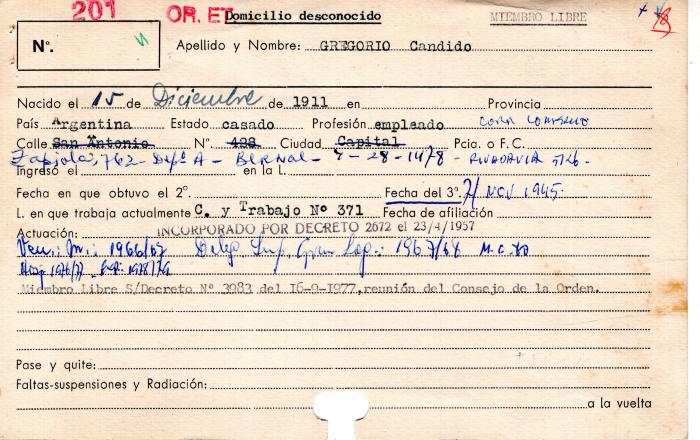 201 OR. ET Domicilio desconocido MIEMBRO LIBRE
N°.
Apellido y Nombre: GREGORIO Candido
Nacido el 15 de Diciembre de 1911 en Provincia
País Argentina Estado casado Profesión empleado
Calle San Antonio N° 428 Ciudad Capital Pcia. o F.C.
Zapiola, 762 - Dpto A - BERNAL - RIVADAVIA
Ingresó el en la L.
Fecha en que obtuvo el 2°. Fecha del 3°. 7/ NOV 1945.
L. en que trabaja actualmente C. y Trabajo N° 371 Fecha de afiliación
Actuación: INCORPORADO POR DECRETO 2672 el 23/4/1957
Ven.: M.: 1966/67 Deleg Sup. Gran Log.: 1967/68
Hosp 1976/77 1978/79
Miembro Libre S/Decreto N° 3983 del 16-9-1977, reunión del Consejo de la Orden.
Pase y quite:
Faltas-suspensiones y Radiación:
a la vuelta